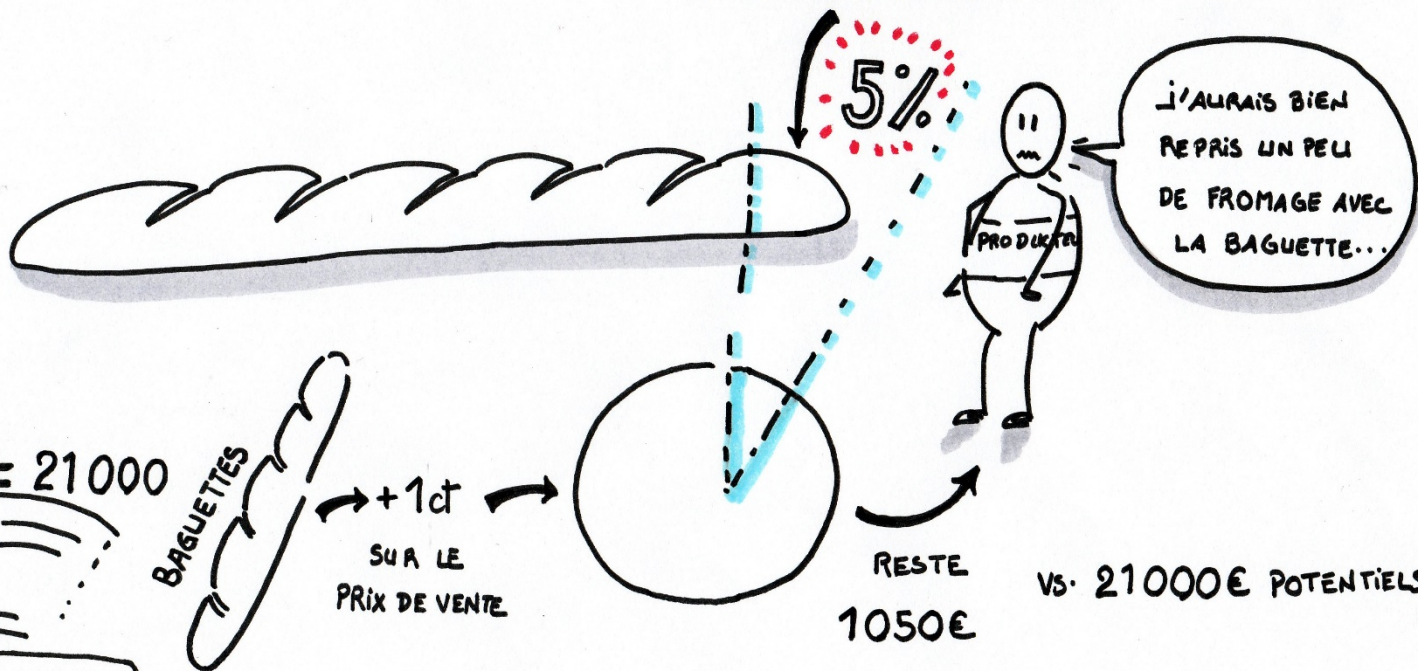 5%
J'AURAIS BIEN
REPRIS UN PEU
DE FROMAGE AVEC
LA BAGUETTE...
PRODUCTEU
= 21000
BAGUETTES
+ 1ct
SUR LE
PRIX DE VENTE
RESTE
1050€
VS. 21000€ POTENTIELS